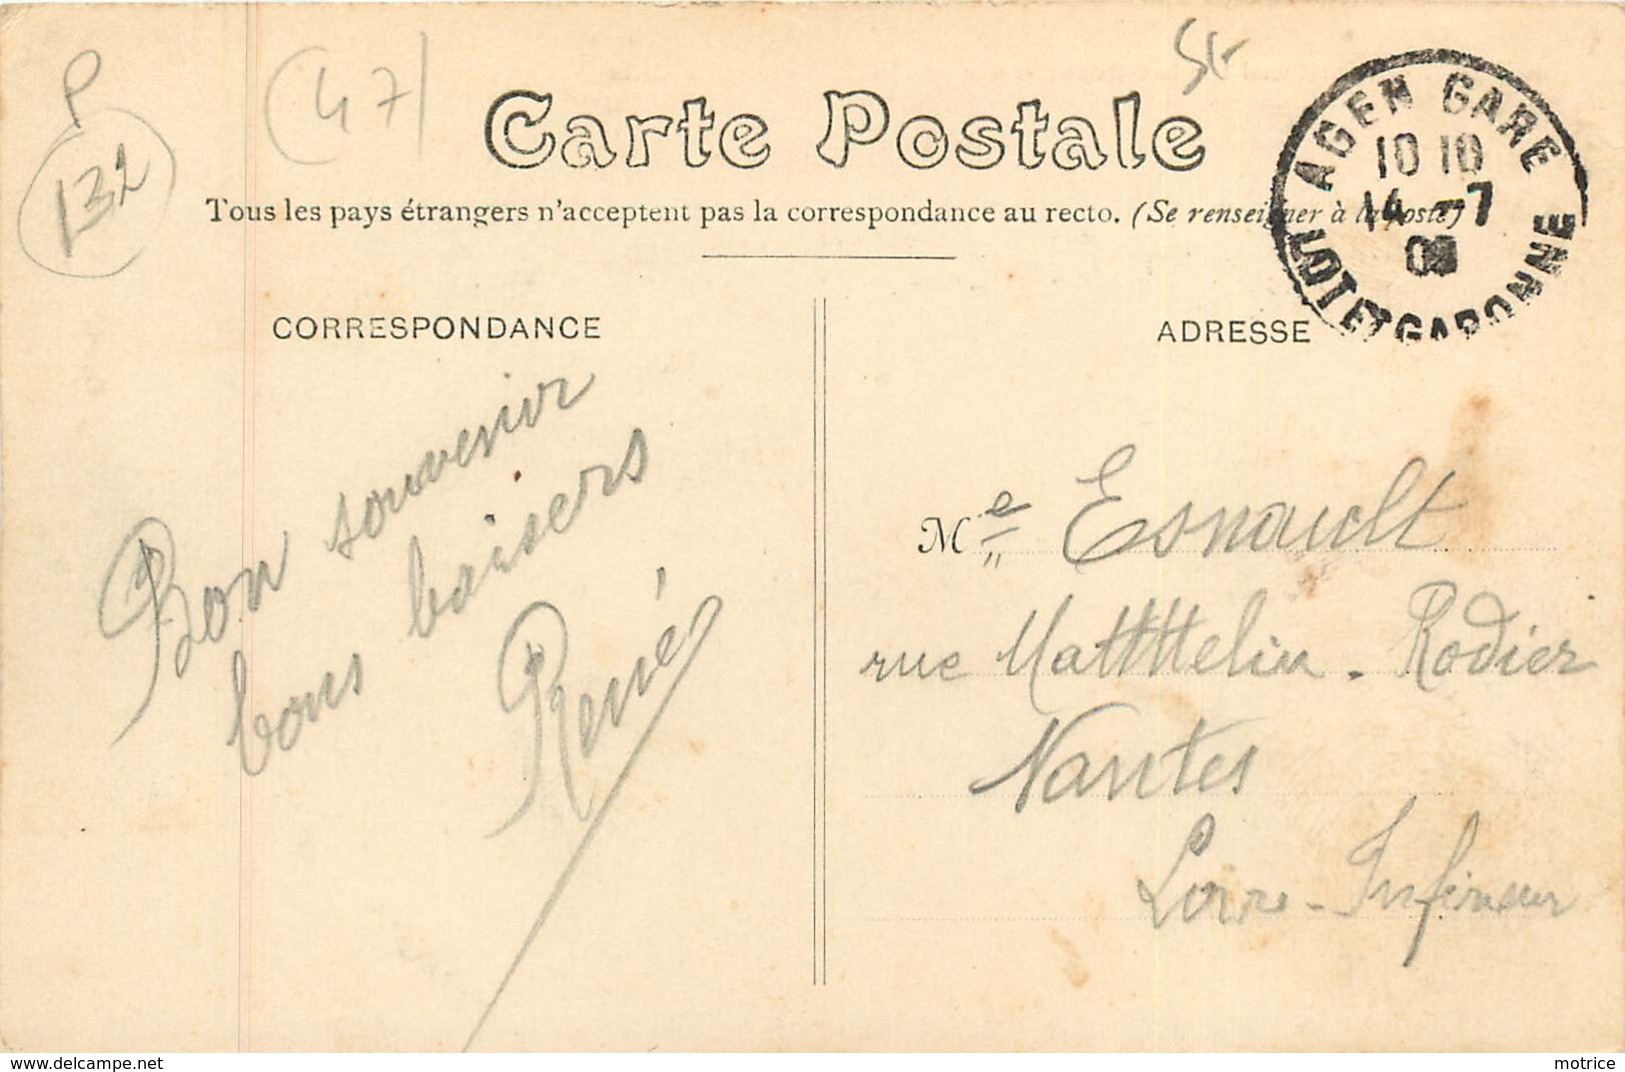 P
132
(47)
Carte Postale
Tous les pays étrangers n'acceptent pas la correspondance au recto. (Se renseigner à la poste)
AGEN GARE
10 10
14 -7
LOT ET GARONNE
CORRESPONDANCE
ADRESSE
Bon souvenir
bons baisers
René
Me Esnault
rue Matthelin - Rodier
Nantes
Loire - Inférieur
motrice